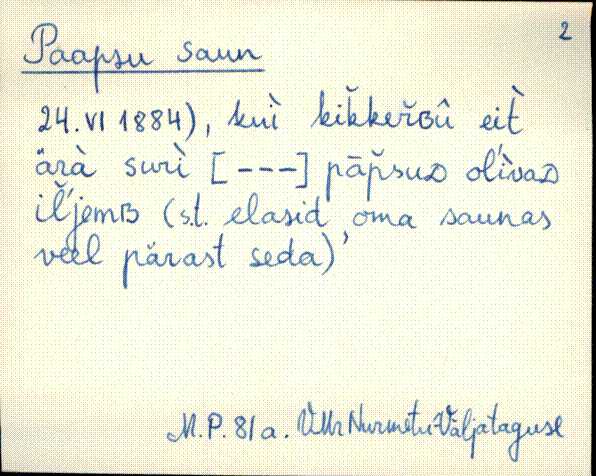 2
Paapsu saun
24. VI 1884), kuì kìk̆keřʙû eìt̀
ärà surì [---] pāp̆suᴅ ol'ìvaᴅ
il̆'jemʙ (s.t. elasid oma saunas
veel pärast seda)'
M.P. 81 a. VMr Nurmetu-Väljataguse